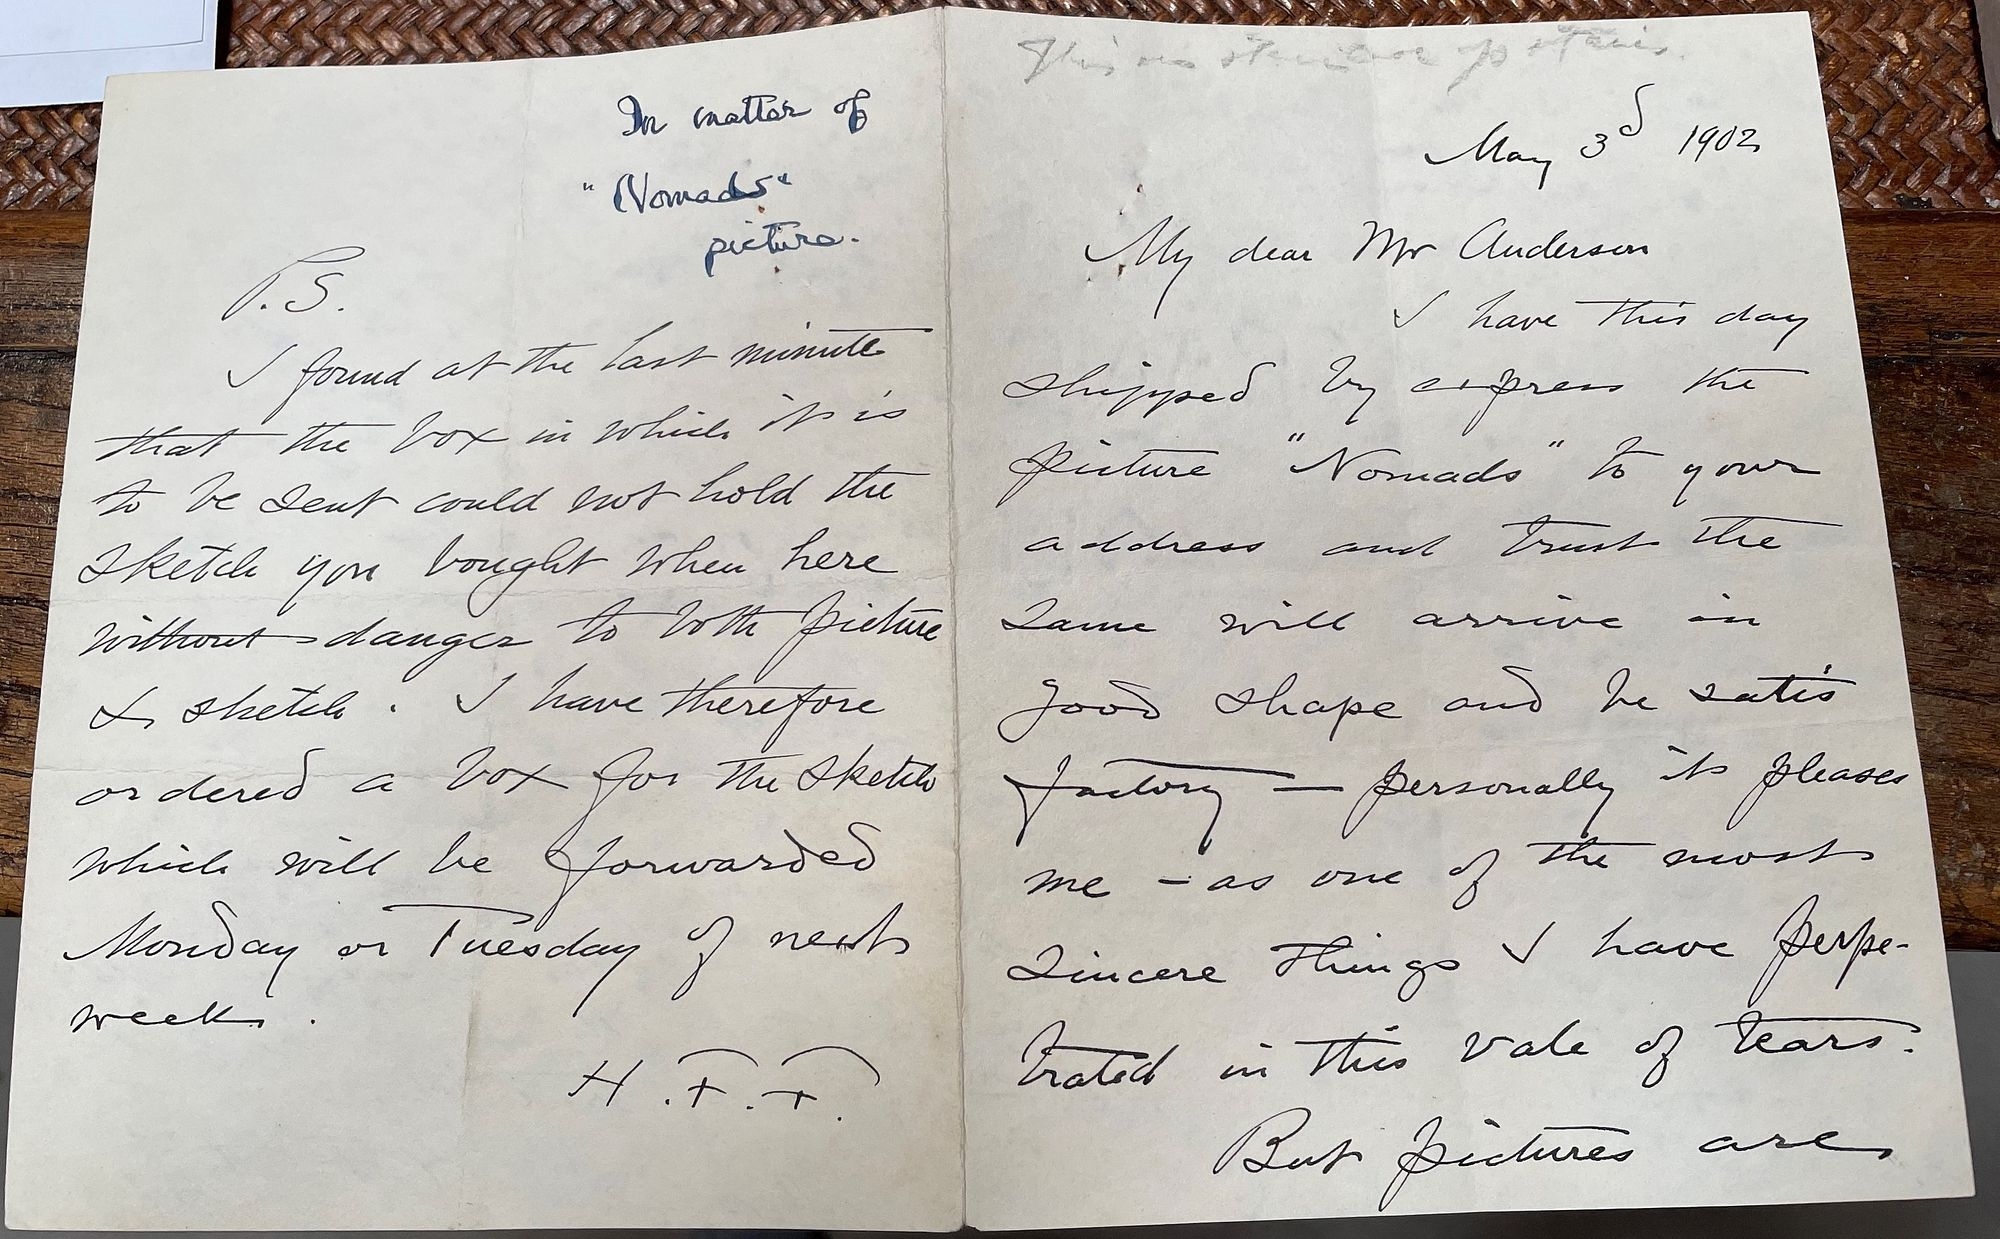 In matter of
"Nomads"
picture.
P.S.
I found at the last minute
that the box in which it is
to be sent could not hold the
sketch you bought when here
without danger to both picture
& sketch. I have therefore
ordered a box for the sketch
which will be forwarded
Monday or Tuesday of next
week.
H.F.F.
This
May 3d 1902
My dear Mr Anderson
I have this day
shipped by express the
picture "Nomads" to your
address and trust the
same will arrive in
good shape and be satis
factory — personally it pleases
me - as one of the most
sincere things I have perpe-
trated in this vale of tears.
But pictures are